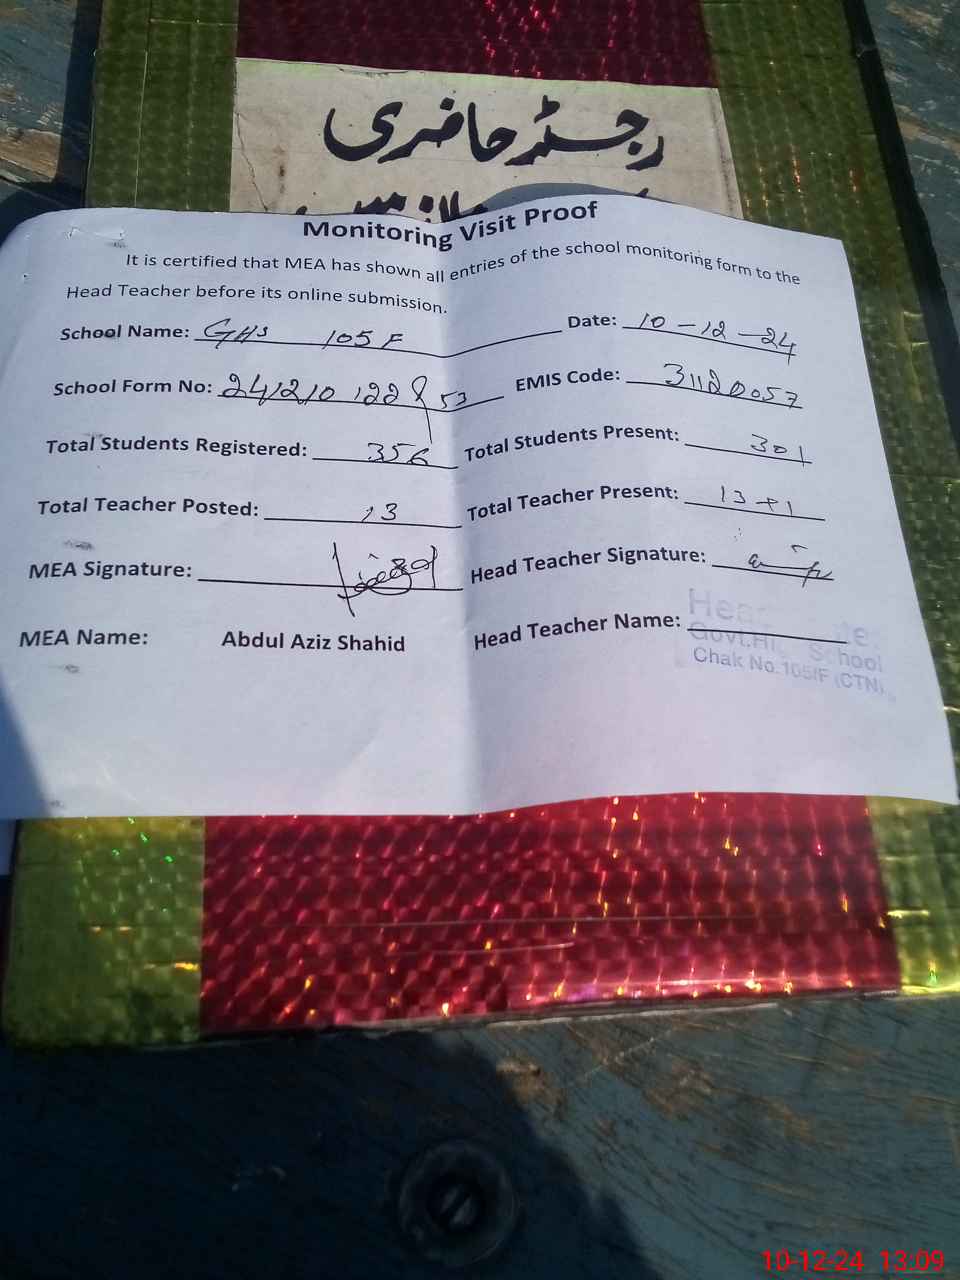 رجسٹر حاضری
Monitoring Visit Proof
It is certified that MEA has shown all entries of the school monitoring form to the
Head Teacher before its online submission.
School Name: GHS 105 F Date: 10-12-24
School Form No: EMIS Code: 31120057
Total Students Registered: 356 Total Students Present: 301
Total Teacher Posted: 13 Total Teacher Present: 13+1
MEA Signature: Head Teacher Signature:
MEA Name: Abdul Aziz Shahid Head Teacher Name:
Govt. High School
Chak No.105/F (CTN)
10-12-24 13:09